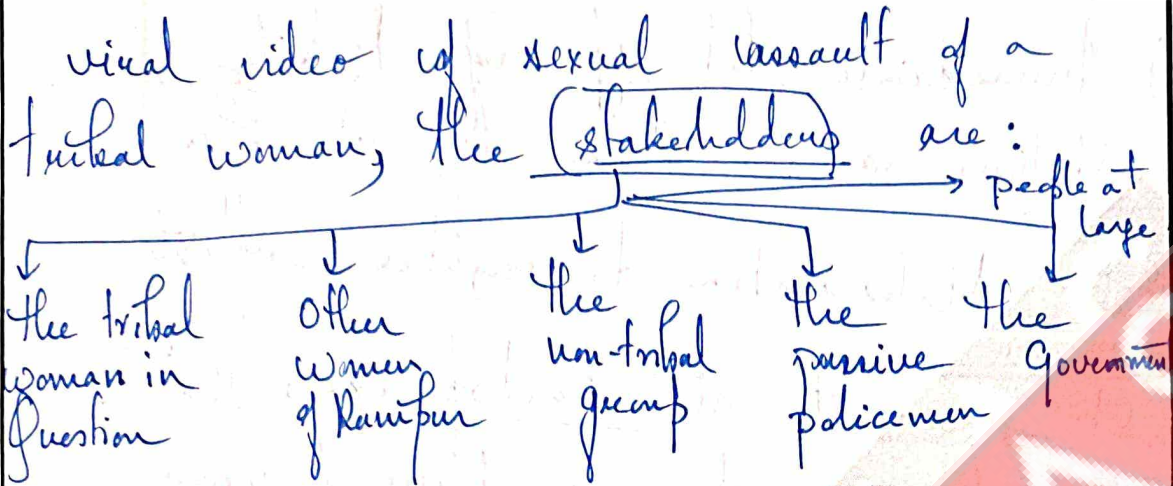 viral video of sexual assault of a
tribal woman, the stakeholders are:
people at
large
the tribal
woman in
Question
Other
women
of Rampur
the
non-tribal
group
the
passive
policemen
the
Government